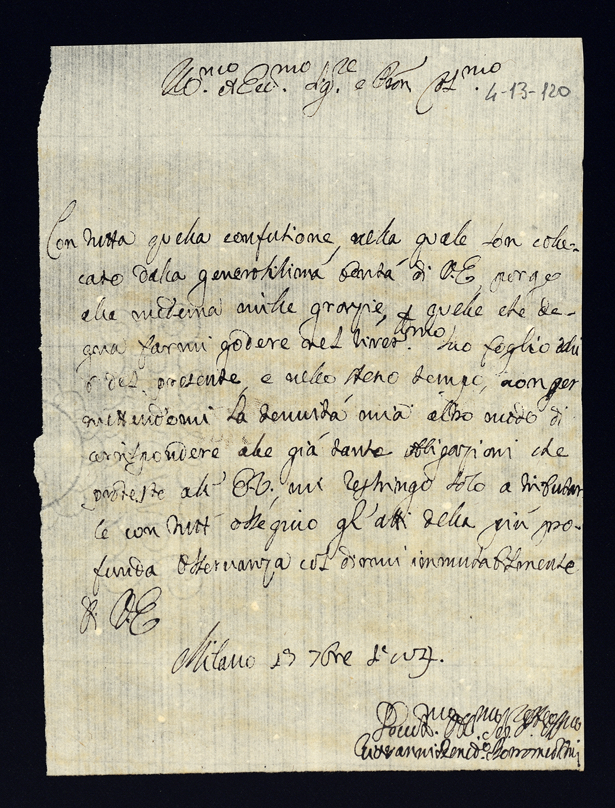 Ill.mo et Ecc.mo Sig.re e Pron Col.mo
4-13-120
Con tutta quella confusione, nella quale son collo-
cato dalla generosissima bontà di V.E. porgo
alla medema mille grazzie, p quelle che de-
gna farmi godere nel river.mo suo foglio
6 del presente, e nello steso tempo, non per
mettendomi la tenuità mia altro modo di
corrispondere alle già tante obligazioni che
protesto all' E.V., mi restringo solo a tributar
le con tutt' ossequio gl'atti della più pro-
funda osseruanza col dirmi immutabilmente
Di V.E.
Milano 13 7bre
Giovanni Bened.o Borromeo